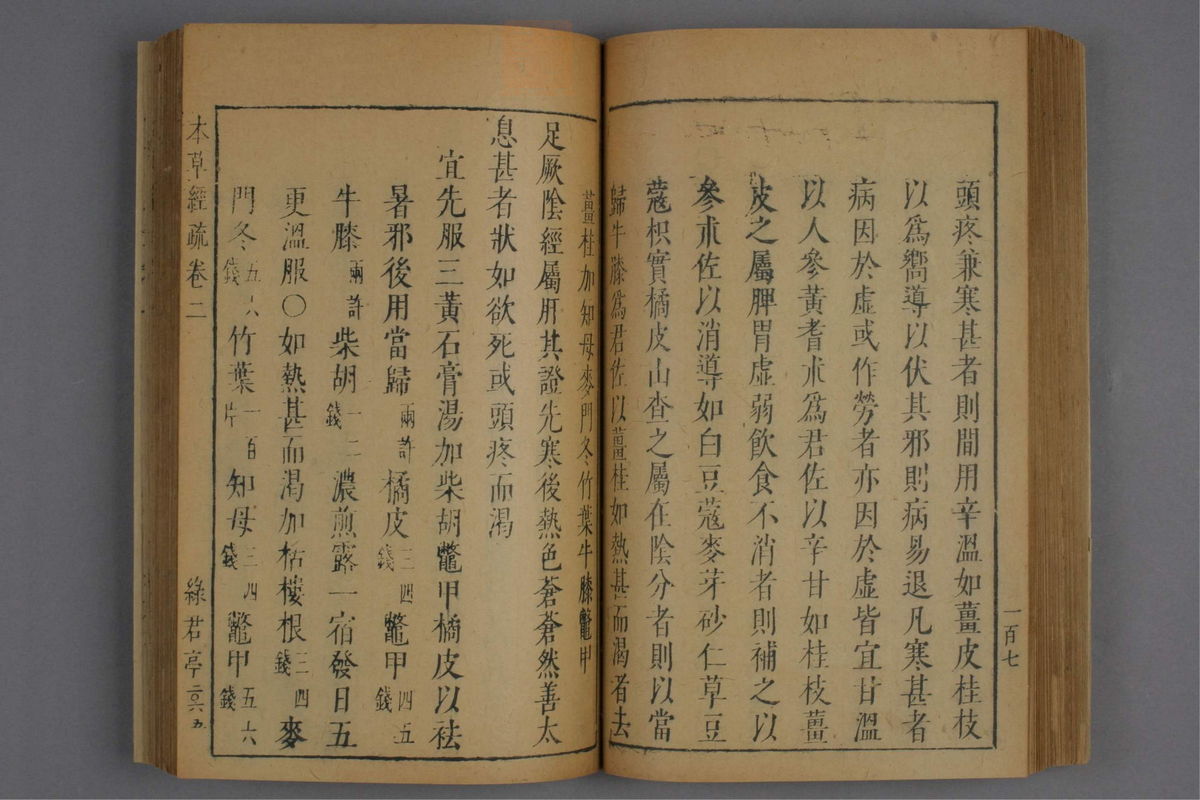 頭疼兼寒甚者則間用辛溫如薑皮桂枝
以爲嚮導以伏其邪則病易退凡寒甚者
病因於虛或作勞者亦因於虛皆宜甘溫
以人參黃耆朮爲君佐以辛甘如桂枝薑
皮之屬脾胃虛弱飲食不消者則補之以
參朮佐以消導如白豆蔻麥芽砂仁草豆
蔻枳實橘皮山查之屬在陰分者則以當
歸牛膝爲君佐以薑桂如熱甚而渴者去
一百七
薑桂加知母麥門冬竹葉牛膝鼈甲
足厥陰經屬肝其證先寒後熱色蒼蒼然善太
息甚者狀如欲死或頭疼而渴
宜先服三黃石膏湯加柴胡鼈甲橘皮以袪
暑邪後用當歸兩許橘皮三四錢鼈甲四五錢
牛膝兩許柴胡一二錢濃煎露一宿發日五
更溫服〇如熱甚而渴加栝樓根三四錢麥
門冬五六錢竹葉一百片知母三四錢鼈甲五六錢
本草經疏卷二
綠君亭